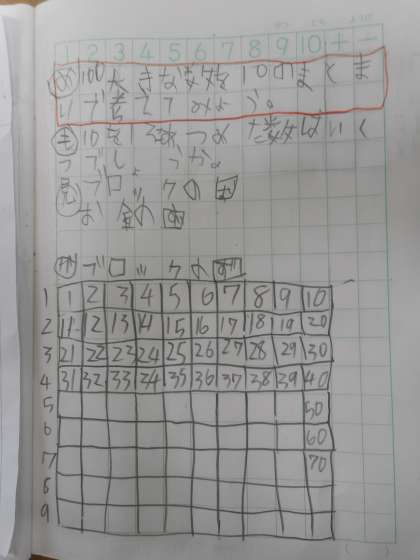 1 2 3 4 5 6 7 8 9 10 + -
め 100 大きな数を10のまとま
りで考えてみよう。
も 10を 10こあつめた数はいく
つでしょうか。
見 ブロックの図
お金の図
ブロックの図
1 1 2 3 4 5 6 7 8 9 10
2 11 12 13 14 15 16 17 18 19 20
3 21 22 23 24 25 26 27 28 29 30
4 31 32 33 34 35 36 37 38 39 40
5 50
6 60
7 70
8
9